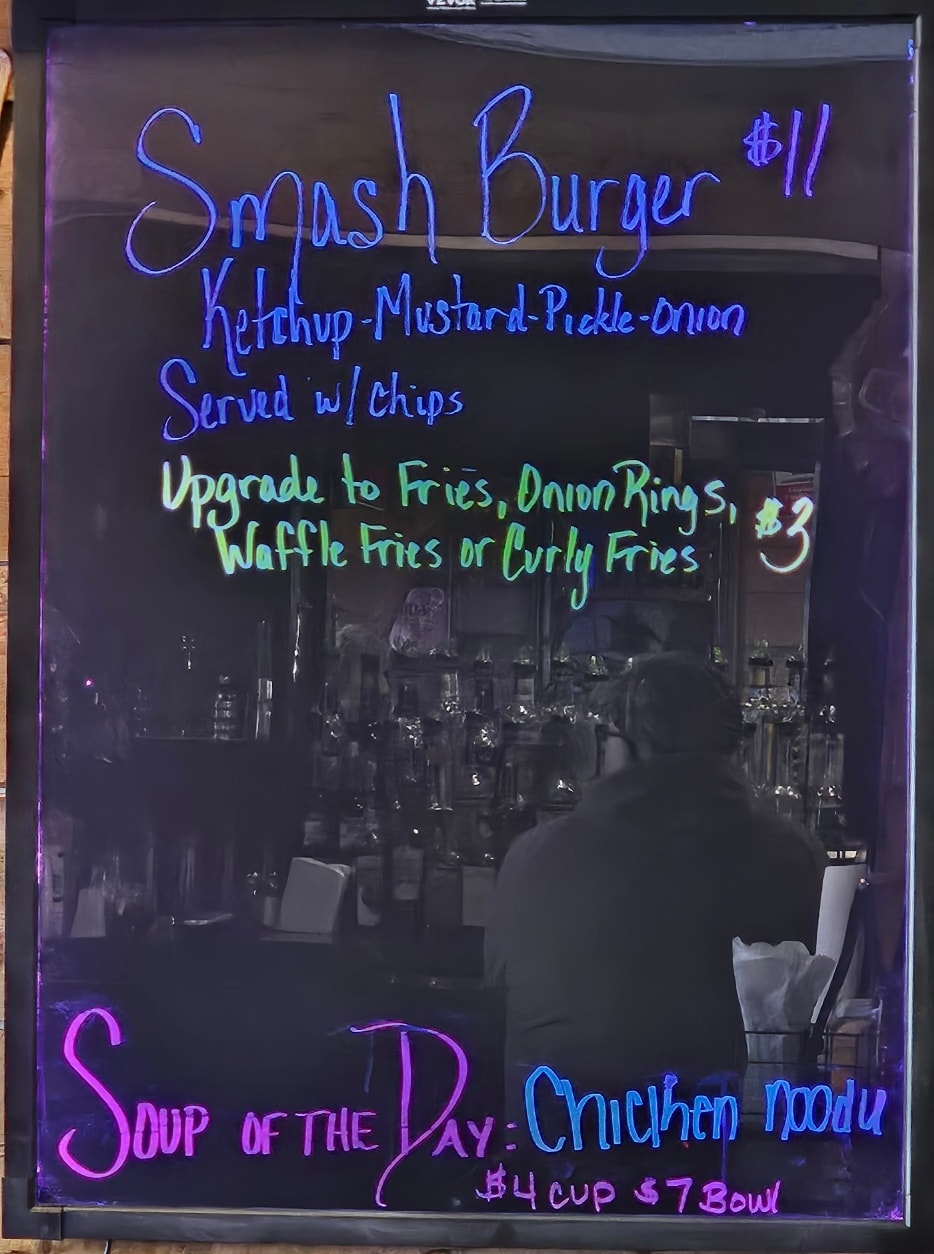 VEVOR
Smash Burger $11
Ketchup-Mustard-Pickle-Onion
Served w/ Chips
Upgrade to Fries, Onion Rings, $3
Waffle Fries or Curly Fries
Soup of the Day: Chiclhen noodu
$4 cup $7 Bowl